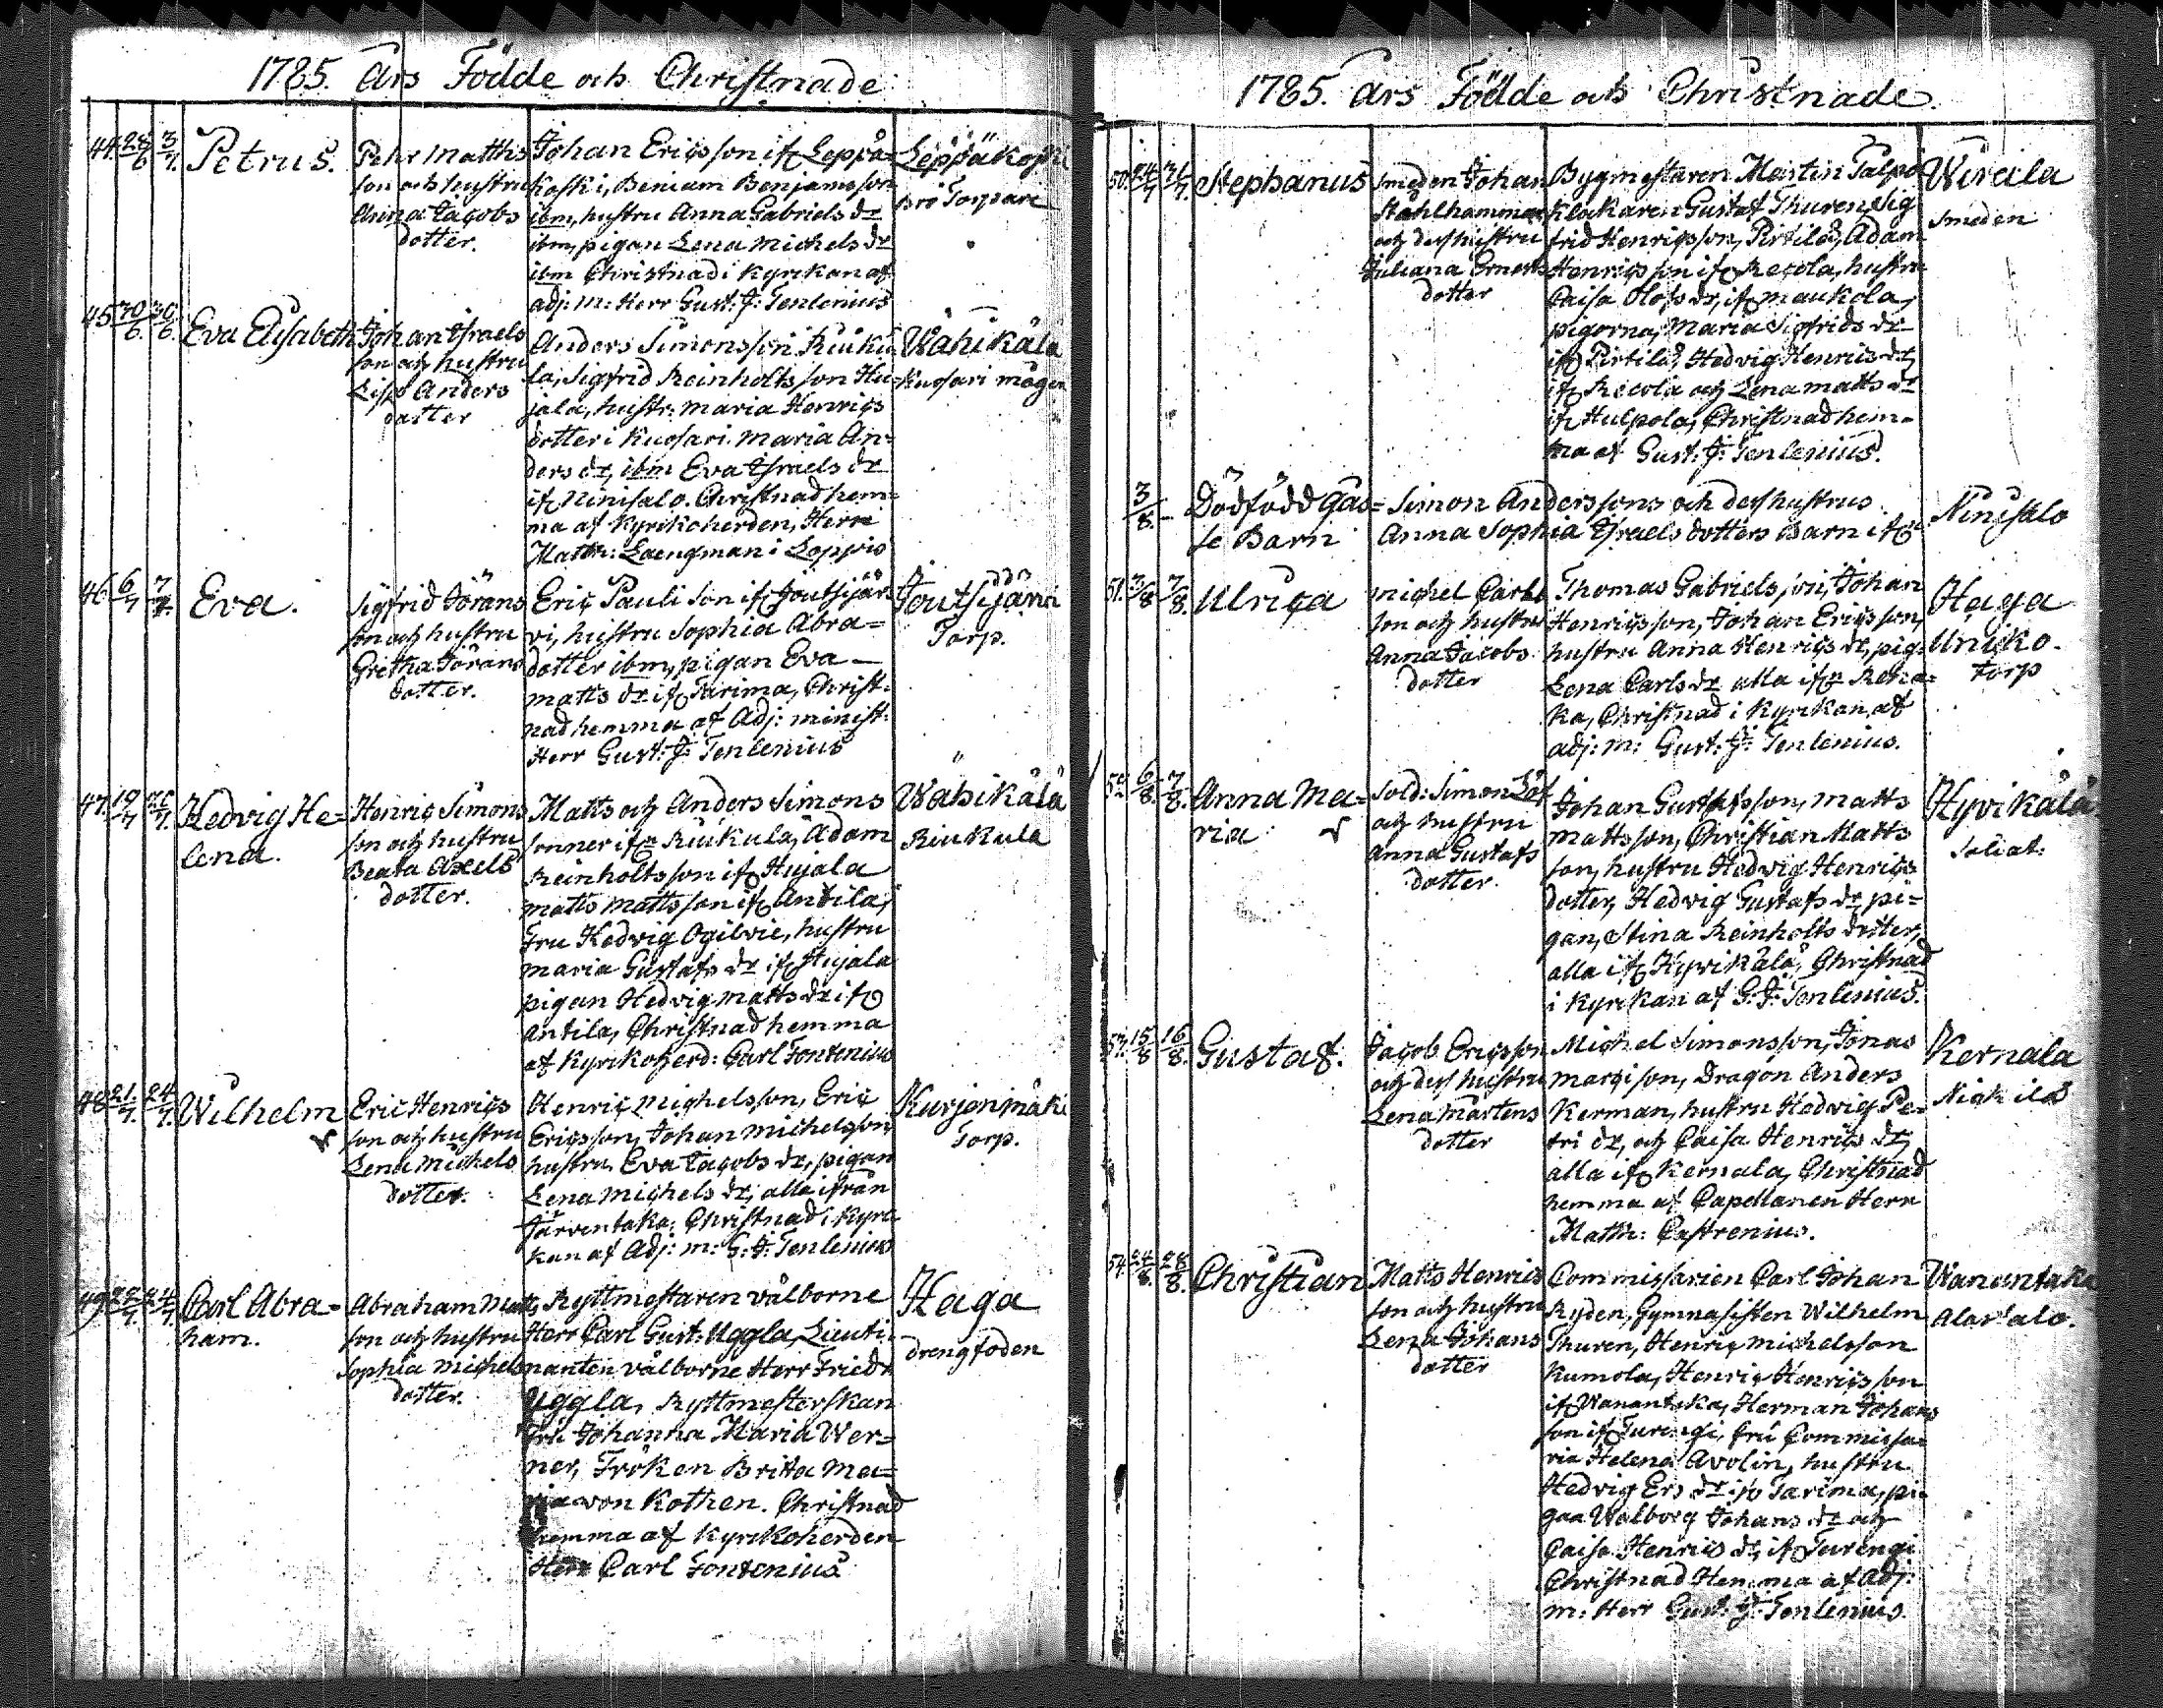 1785. Års Födde och Christnade
44. 28/6 3/7. Petrus.
Pehr Matths
son och hustru
Anna Jacobs
dotter.
Johan Ericsson ifr Leppä-
koski, Beniam Benjamsson
ibm, hustru Anna Gabriels dr
ibm, pigan Lena Michels dr
ibm Christnad i Kyrkan af
adj: m: Herr Gust: J: Tenlenius
Leppäkoski
bro Torpare
45 30/6. 30/6. Eva Elisabeth
Johan Israels
son och hustru
Lisa Anders
dotter
Anders Simonsson Riuku
la, Sigfrid Reinholtsson Hu-
jala, hustr: Maria Henrics
dotter i Kuosari. Maria An-
ders dr, ibm Eva Israels dr
ifr Ninisalo. Christnad hem-
ma af Kyrkoherden, Herr
Matth: Laengman i Loppis
Wähikälä
Kuosari mågen
46. 6/7 7/7. Eva.
Sigfrid Görans
son och hustru
Gretha Görans
dotter.
Eric Pauli son ifr Joutsijär
vi, hustru Sophia Abra-
dotter ibm, pigan Eva
Matts dr ifr Tarima, Christ-
nad hemma af Adj: minist:
Herr Gust: J: Tenlenius
Joutsijärvi
Torp.
47. 19/7 Hedvig He-
lena.
Henric Simons
son och hustru
Beata Axels
dotter.
Matts och Anders Simons
sonner ifr Riukula, Adam
Reinholtsson ifr Hujala
Matts Mattsson ifr Antila,
Fru Hedvig Ogilvie, hustru
Maria Gustafs dr ifr Hujala
pigan Hedvig Matts dr ifr
Antila, Christnad hemma
af Kyrkoherd: Carl Fontenius
Wähikälä
Riukula
48 21/7. 24/7. Wilhelm
Eric Henrics
son och hustru
Lena Michels
dotter.
Henric Michelsson, Eric
Ericsson, Johan Michelsson
hustru Eva Jacobs dr, pigan
Lena Michels dr, alla ifrån
Järventaka; Christnad i Kyrk
kan af Adj: m: G: J: Tenlenius
Kurjenmäki
Torp.
49 Carl Abra-
ham.
Abraham Matts
son och hustru
Sophia Michels
dotter.
Ryttmestaren välborne
Herr Carl Gust: Uggla, Lieute
nanten välborne Herr Friedr
Uggla, Ryttmesterskan
Fru Johanna Maria Wer-
ner, Fröken Brita Ma-
ria von Kothen. Christnad
hemma af Kyrkoherden
Herr Carl Fontenius
Haga
drengfoden
1785. Års Födde och Christnade.
50. 24/7 31/7. Stephanus
Smeden Johan
Stålhammar
och dess hustru
Juliana Ernests
dotter
Bygmestaren Martin Talpo
Klockaren Gustaf Thuren, Sig
frid Henricsson, Pirtilä, Adam
Henricsson ifr Recola, hustru
Caisa Olofs dr, ifr Maukola,
pigorna, Maria Sigfrids dr
ifr Pirtilä, Hedvig Henrics dr,
ifr Recola och Lena Matts dr
ifr Hulpola, Christnad hem-
ma af Gust: J: Tenlenius.
Wirala
Smeden
3/8. Dödfödd gås-
se Barn
Simon Anderssons och dess hustrus
Anna Sophia Israels dotters Barn ifr
Ninisalo
51. 3/8 7/8. Ulrica
Michel Carls
son och hustru
Anna Jacobs
dotter
Thomas Gabrielsson, Johan
Henricsson, Johan Ericsson,
hustru Anna Henrics dr, pig:
Lena Carls dr alla ifr Retha-
ka, Christnad i Kyrkan, af
adj: m: Gust: J: Tenlenius.
Haga
Uniko.
torp
52. 6/8. 7/8. Anna Ma-
ria
Sold: Simon Löf
och hustru
Anna Gustafs
dotter.
Johan Gustafsson, Matts
Mattsson, Christian Matts
son, hustru Hedvig Henrics
dotter, Hedvig Gustafs dr, pi-
gan, Stina Reinholts dotter,
alla ifr Hyvikälä, Christnad
i Kyrkan af G: J: Tenlenius.
Hyvikälä
Soldat.
53. 15/8 16/8. Gustaf.
Jacob Ericsson
och dess hustru
Lena Mårtens
dotter
Michel Simonsson, Jonas
Marcisson, Dragon Anders
Kerman, hustru Hedvig Pe-
tri dr, och Caisa Henrics dr,
alla ifr Kernala, Christnad
hemma af Capellanen Herr
Matth: Castrenius.
Kernala
Nickilä
54. 24/8. 28/8. Christian
Matts Henrics
son och hustru
Lena Johans
dotter
Commissarien Carl Johan
Ryden, Gymnasisten Wilhelm
Thuren, Henric Michelsson
Kumola, Henric Henricsson
ifr Wanantaka, Herman Johans
son ifr Turengi, fru Commissa
ria Helena Avolin, hustru
Hedvig Ers dr ifr Tarima, pi-
gan Walborg Johans dr och
Caisa Henrics dr, ifr Turengi
Christnad Hemma af Adj:
m: Herr Gust: J: Tenlenius.
Wanantaka
Alastalo.